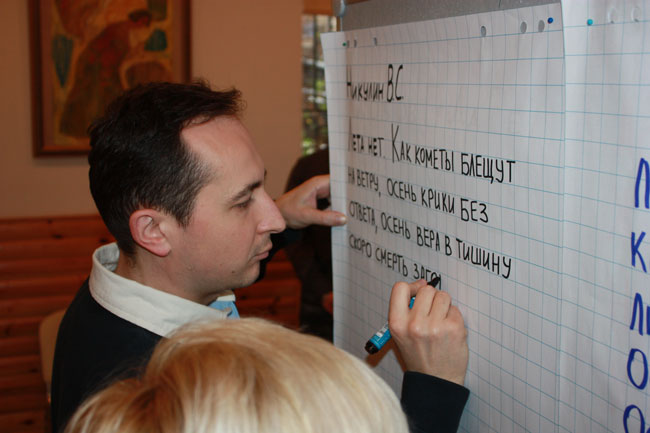 НИКУЛИН В.С
ЛЕТА НЕТ. КАК КОМЕТЫ БЛЕЩУТ
НА ВЕТРУ, ОСЕНЬ КРИКИ БЕЗ
ОТВЕТА, ОСЕНЬ ВЕРА В ТИШИНУ
СКОРО СМЕРТЬ ЗАГО